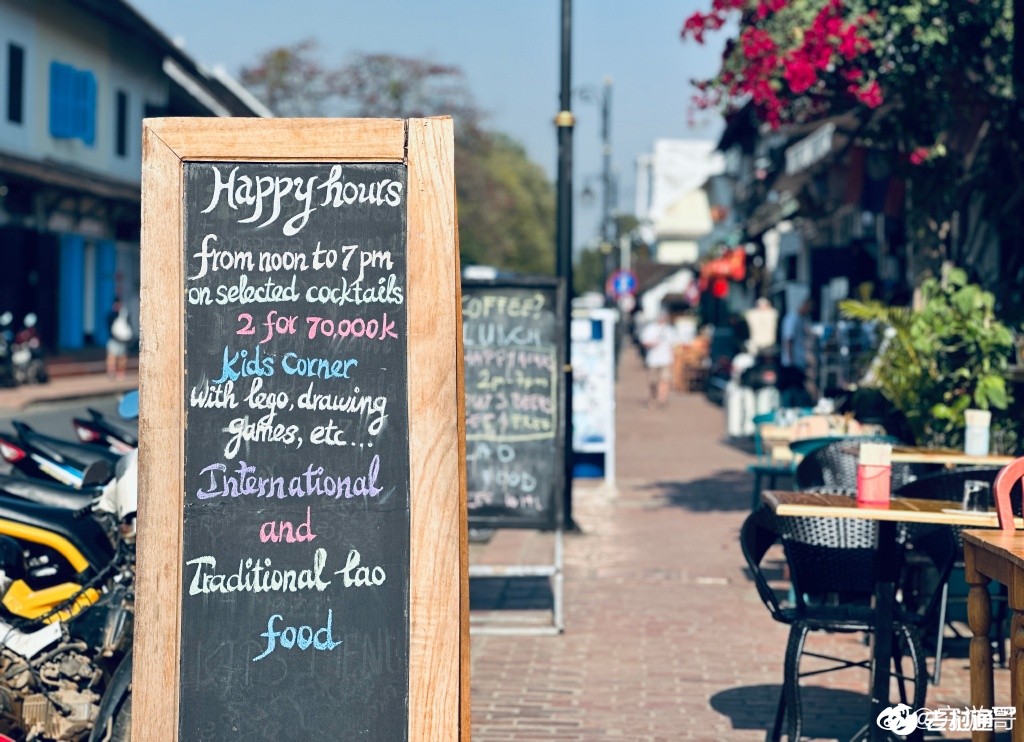 Happy hours
from noon to 7 pm
on selected cocktails
2 for 70,000k
Kid's Corner
with lego, drawing
games, etc...
International
and
Traditional lao
food
COFFEE?
LUNCH
HAPPY
2pm-7pm
LAO
FOOD